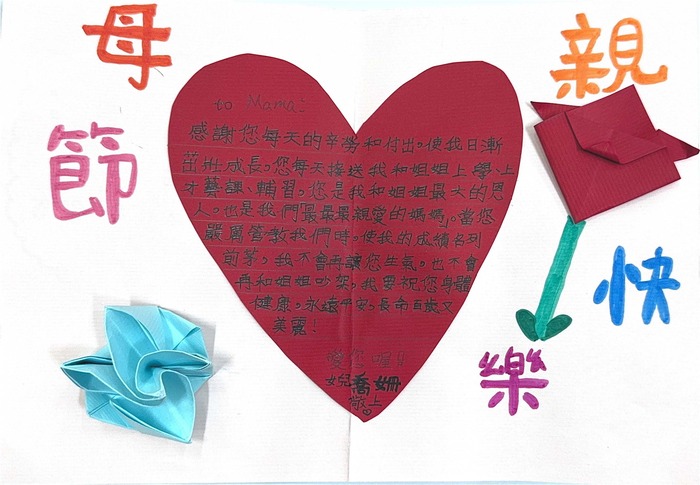 母親
節快
樂
to Mama:
感謝您每天的辛勞和付出。使我日漸
茁壯成長。您每天接送我和姐姐上學、上
才藝課、輔習。您是我和姐姐最大的恩
人。也是我們「最最最親愛的媽媽」。當您
嚴厲管教我們時。使我的成績名列
前茅。我不會再讓您生氣。也不會
再和姐姐吵架。我要祝您身體
健康。永遠平安。長命百歲又
美麗!
愛您喔!!
女兒喬姍
敬上